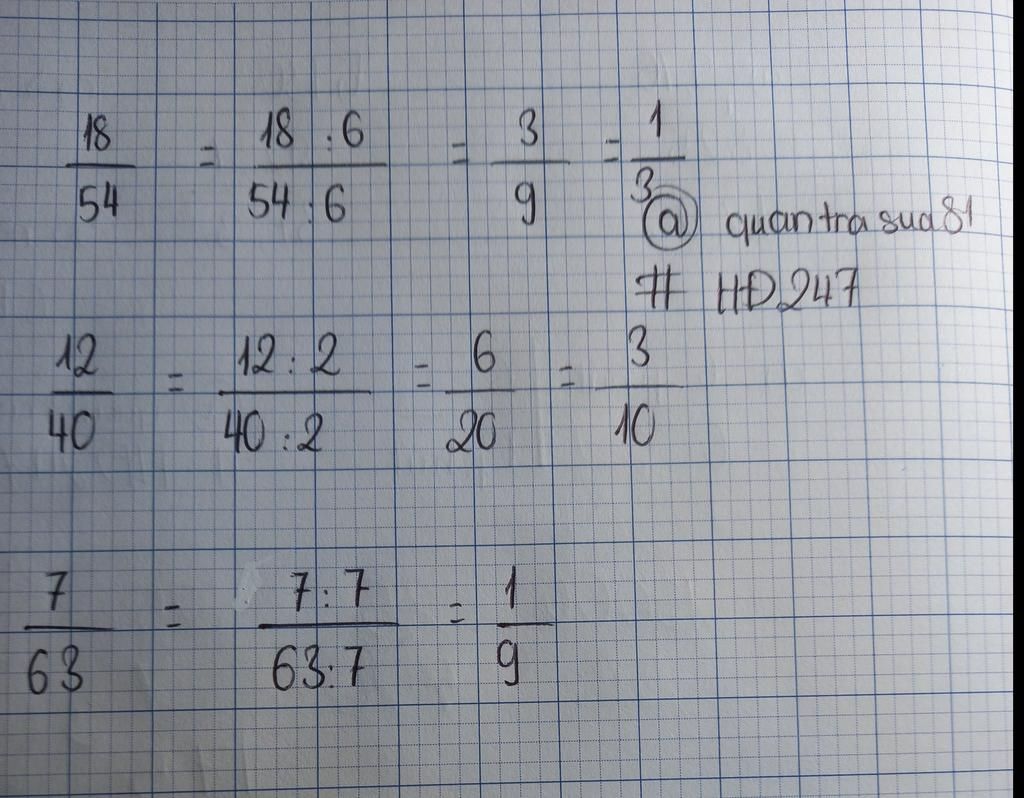 18/54 = 18 : 6/54 : 6 = 3/9 = 1/3
@ quantrasua81
# HĐ247
12/40 = 12 : 2/40 : 2 = 6/20 = 3/10
7/63 = 7 : 7/63 : 7 = 1/9